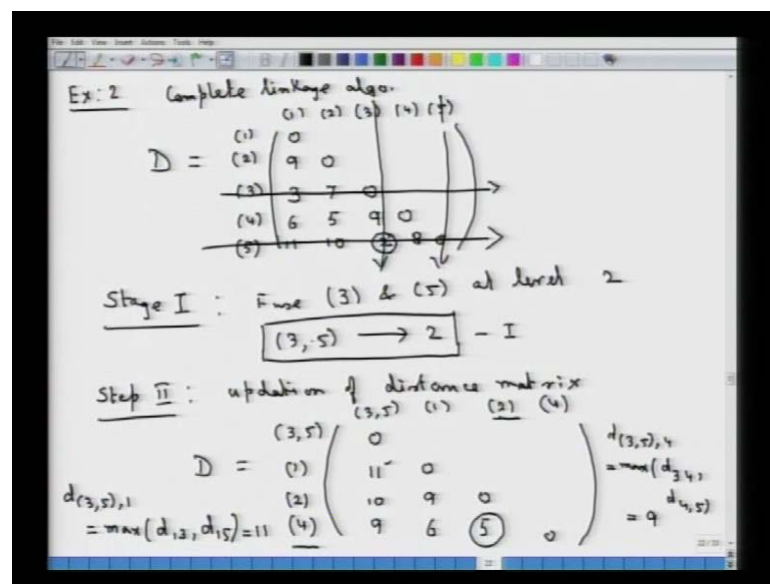 File Edit View Insert Actions Tools Help
Ex: 2 Complete linkage algo.
(1) (2) (3) (4) (5)
(1) 0
D = (2) 9 0
(3) 3 7 0
(4) 6 5 9 0
(5) 11 10 2 8 0
Stage I : Fuse (3) & (5) at level 2
(3, 5) → 2 - I
Step II : updation of distance matrix
(3,5) (1) (2) (4)
(3,5) 0
D = (1) 11 0
(2) 10 9 0
(4) 9 6 5 0
d(3,5),1
= max(d13, d15) = 11
d(3,5),4
= max(d34,
d4,5)
= 9
22/22
22